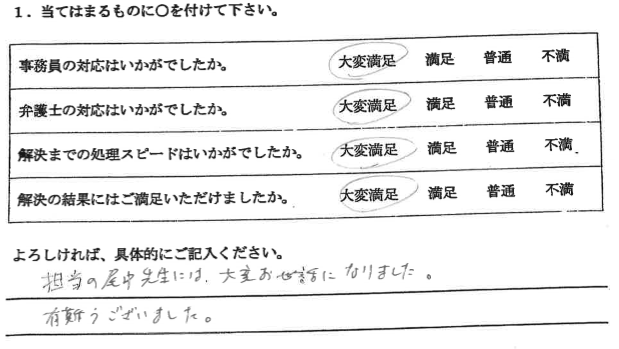 1．当てはまるものに〇を付けて下さい。
事務員の対応はいかがでしたか。 大変満足 満足 普通 不満
弁護士の対応はいかがでしたか。 大変満足 満足 普通 不満
解決までの処理スピードはいかがでしたか。 大変満足 満足 普通 不満
解決の結果にはご満足いただけましたか。 大変満足 満足 普通 不満
よろしければ、具体的にご記入ください。
担当の尾中先生には、大変お世話になりました。
有難うございました。